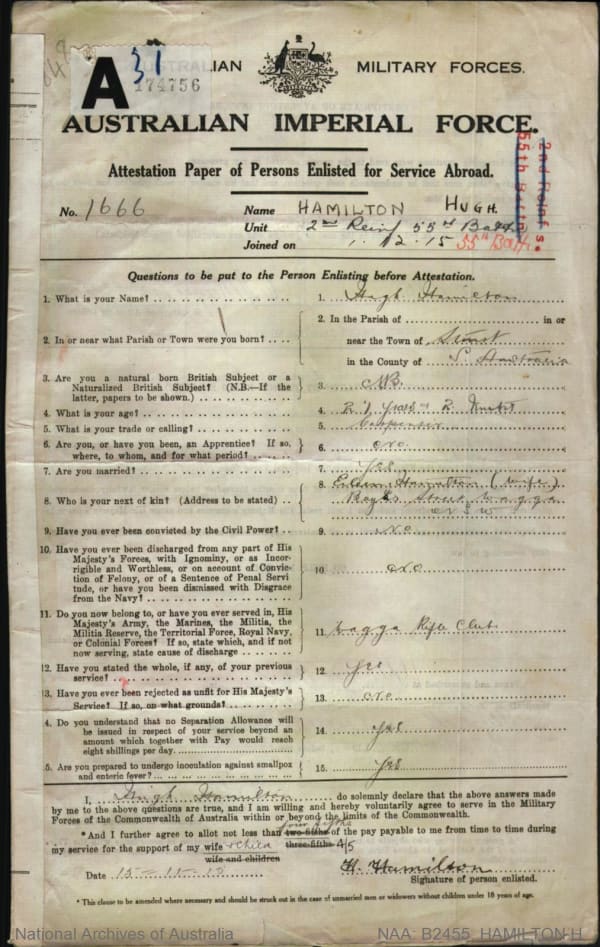 A
37
174756
IAN MILITARY FORCES.
AUSTRALIAN IMPERIAL FORCE.
Attestation Paper of Persons Enlisted for Service Abroad.
2nd Reinf's.
55th Battn
No. 1666
Name HAMILTON HUGH.
Unit 2nd Reinf 55th Battn
Joined on 1.12.15 55th Batt.
Questions to be put to the Person Enlisting before Attestation.
1. What is your Name? 1. Hugh Hamilton
2. In or near what Parish or Town were you born? 2. In the Parish of in or
near the Town of
in the County of S. Australia
3. Are you a natural born British Subject or a
Naturalized British Subject? (N.B.—If the
latter, papers to be shown.) 3.
4. What is your age? 4. years
5. What is your trade or calling? 5.
6. Are you, or have you been, an Apprentice? If so,
where, to whom, and for what period? 6. no
7. Are you married? 7. Yes
8. Who is your next of kin? (Address to be stated) 8. Hamilton (Wife)
Street Wagga
N S W
9. Have you ever been convicted by the Civil Power? 9. no
10. Have you ever been discharged from any part of His
Majesty's Forces, with Ignominy, or as Incor-
rigible and Worthless, or on account of Convic-
tion of Felony, or of a Sentence of Penal Servi
tude, or have you been dismissed with Disgrace
from the Navy? 10. no
11. Do you now belong to, or have you ever served in, His
Majesty's Army, the Marines, the Militia, the
Militia Reserve, the Territorial Force, Royal Navy,
or Colonial Forces? If so, state which, and if not
now serving, state cause of discharge 11. Wagga Rifle Club
12. Have you stated the whole, if any, of your previous
service? 12. Yes
13. Have you ever been rejected as unfit for His Majesty's
Service? If so, on what grounds? 13. no
4. Do you understand that no Separation Allowance will
be issued in respect of your service beyond an
amount which together with Pay would reach
eight shillings per day. 14. Yes
5. Are you prepared to undergo inoculation against smallpox
and enteric fever? 15. Yes
I, Hugh Hamilton do solemnly declare that the above answers made
by me to the above questions are true, and I am willing and hereby voluntarily agree to serve in the Military
Forces of the Commonwealth of Australia within or beyond the limits of the Commonwealth.
four fifths
*And I further agree to allot not less than two-fifths of the pay payable to me from time to time during
my service for the support of my wife & child three-fifths 4/5
wife and children
Date 15-11-15 H. Hamilton
Signature of person enlisted.
* This clause to be amended where necessary and should be struck out in the case of unmarried men or widowers without children under 18 years of age.
National Archives of Australia NAA: B2455, HAMILTON H